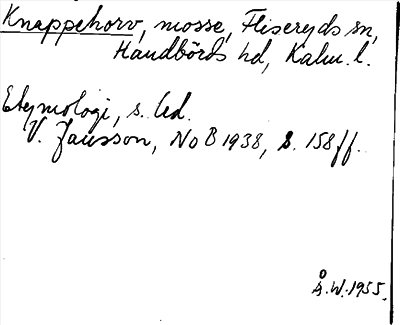 Knappehorv, mosse, Fliseryds sn,
Handbörds hd, Kalm. l.
Etymologi, s. Ed.
V. Jansson, NoB 1938, s. 158 ff.
Å.W. 1955.